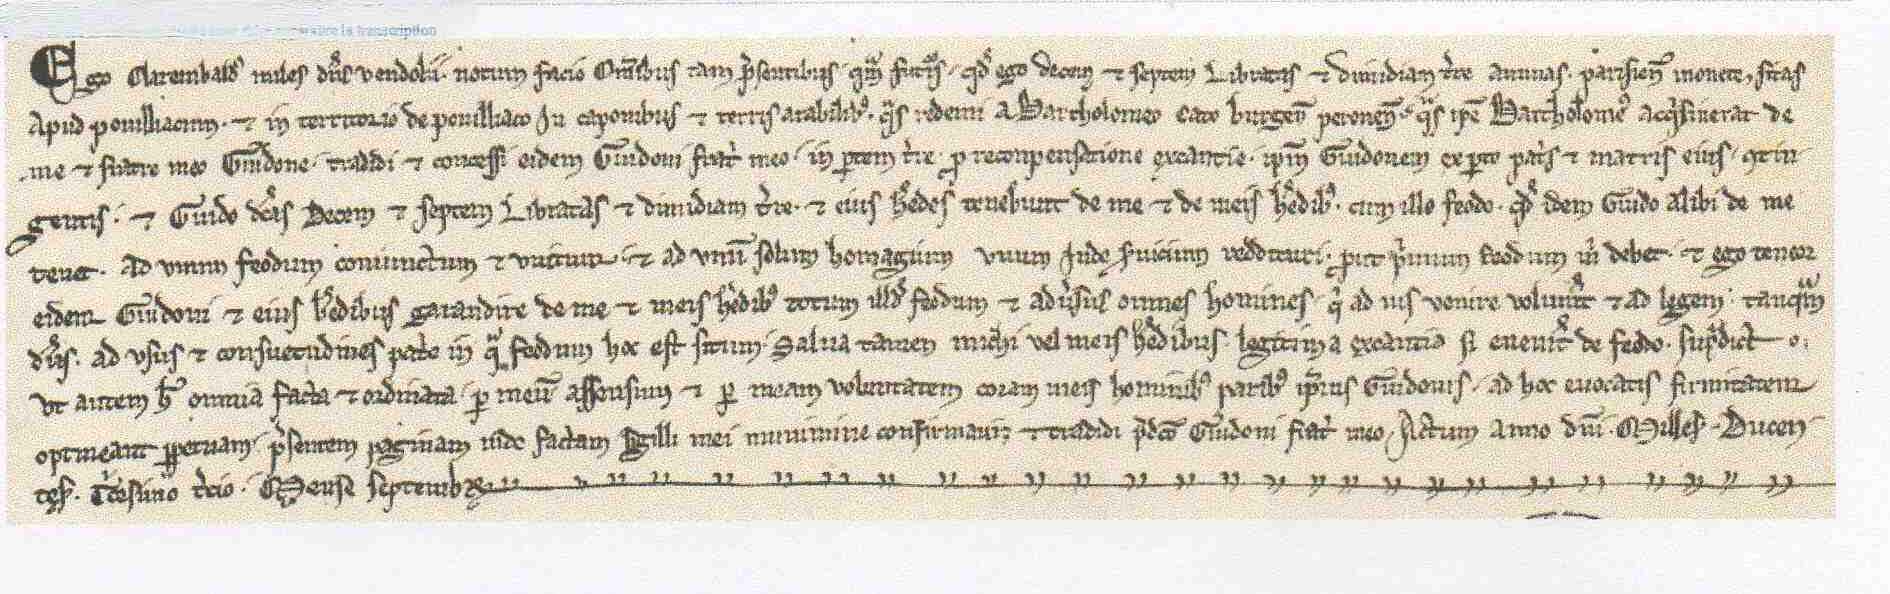 la transcription
Ego Clarembald' miles dn̄s vendolii. notum facio Om̄ibus tam p̄sentibus. qm̄ futur'. qd' ego decem ⁊ septem Libratas ⁊ dimidiam t're annuas. parisien̄ monete, sitas
Apud pouilliacum. ⁊ in territorio de pouilliaco In caponibus ⁊ terris arabilib'. q̄s redemi a Bartholomeo Cato burgen̄ peronen̄. q̄s ip̄e Bartholome' acq'sierat de
me ⁊ fratre meo Guidone. tradidi ⁊ concessi eidem Guidoni frat'i meo. in p̱tem t're. p̱ reconpensatione excantie. ip̄m Guidonem ex p̱te pat'is ⁊ matris eius. 9tin
gentis. ⁊ Guido dc̄as Decem ⁊ septem Libratas ⁊ dimidiam t're. ⁊ eius h'edes tenebunt de me ⁊ de meis h'edib'. cum illo feodo. qd' idem Guido alibi de me
tenet. ad vnum feodum coniunctum ⁊ vnitum. ⁊ ad vnū solum homagium vnum Inde s'uicium reddituri. put p'mum feodum m̄ debet. ⁊ ego teneor
eidem Guidoni ⁊ eius h'edibus garandire de me ⁊ meis h'edib' totum illd' feodum ⁊ adu'sus omnes homines. q' ad ius venire volu'int ⁊ ad legem. tanq̄m
dn̄s. ad vsus ⁊ consuetudines pat'e in q̄ feodum hoc est situm. Salua tamen michi vel meis h'edibus legitima excantia si euen'it de feodo. sup̄dict o.
vt autem h' omnia facta ⁊ ordinata. p̱ meū assensum ⁊ p̱ meam voluntatem coram meis hominib' parib' ip̄ius Guidonis. ad hoc euocatis firmitatem
optineant pp̱etuam. p̄sentem paginam inde factam Sigilli mei munimine confirmaui; ⁊ tradidi p̄dc̄o Guidoni frat'i meo. Actum Anno dn̄i. Milles. Ducen
tes. T'cesimo t'cio. Mense septembr.